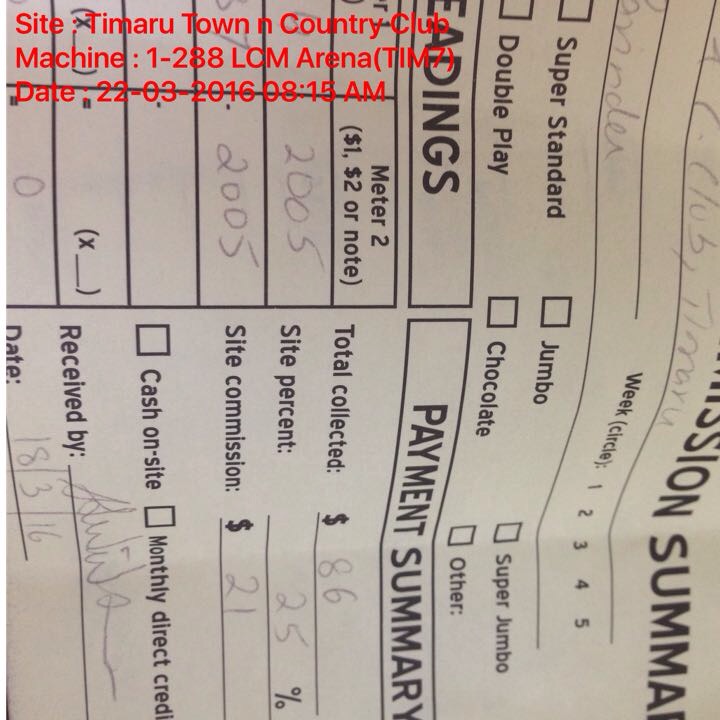 Site : Timaru Town n Country Club
Machine : 1-288 LCM Arena(TIM7)
Date : 22-03-2016 08:15 AM
MISSION SUMMAR
Club, Timaru
Week (circle): 1 2 3 4 5
Super Standard
Jumbo
Super Jumbo
Double Play
Chocolate
Other:
EADINGS
PAYMENT SUMMARY
Meter 2
($1, $2 or note)
2005
2005
(x__)
0
Total collected: $ 86
Site percent: 25 %
Site commission: $ 21
Cash on-site
Monthly direct credi
Received by:
Date: 18/3/16